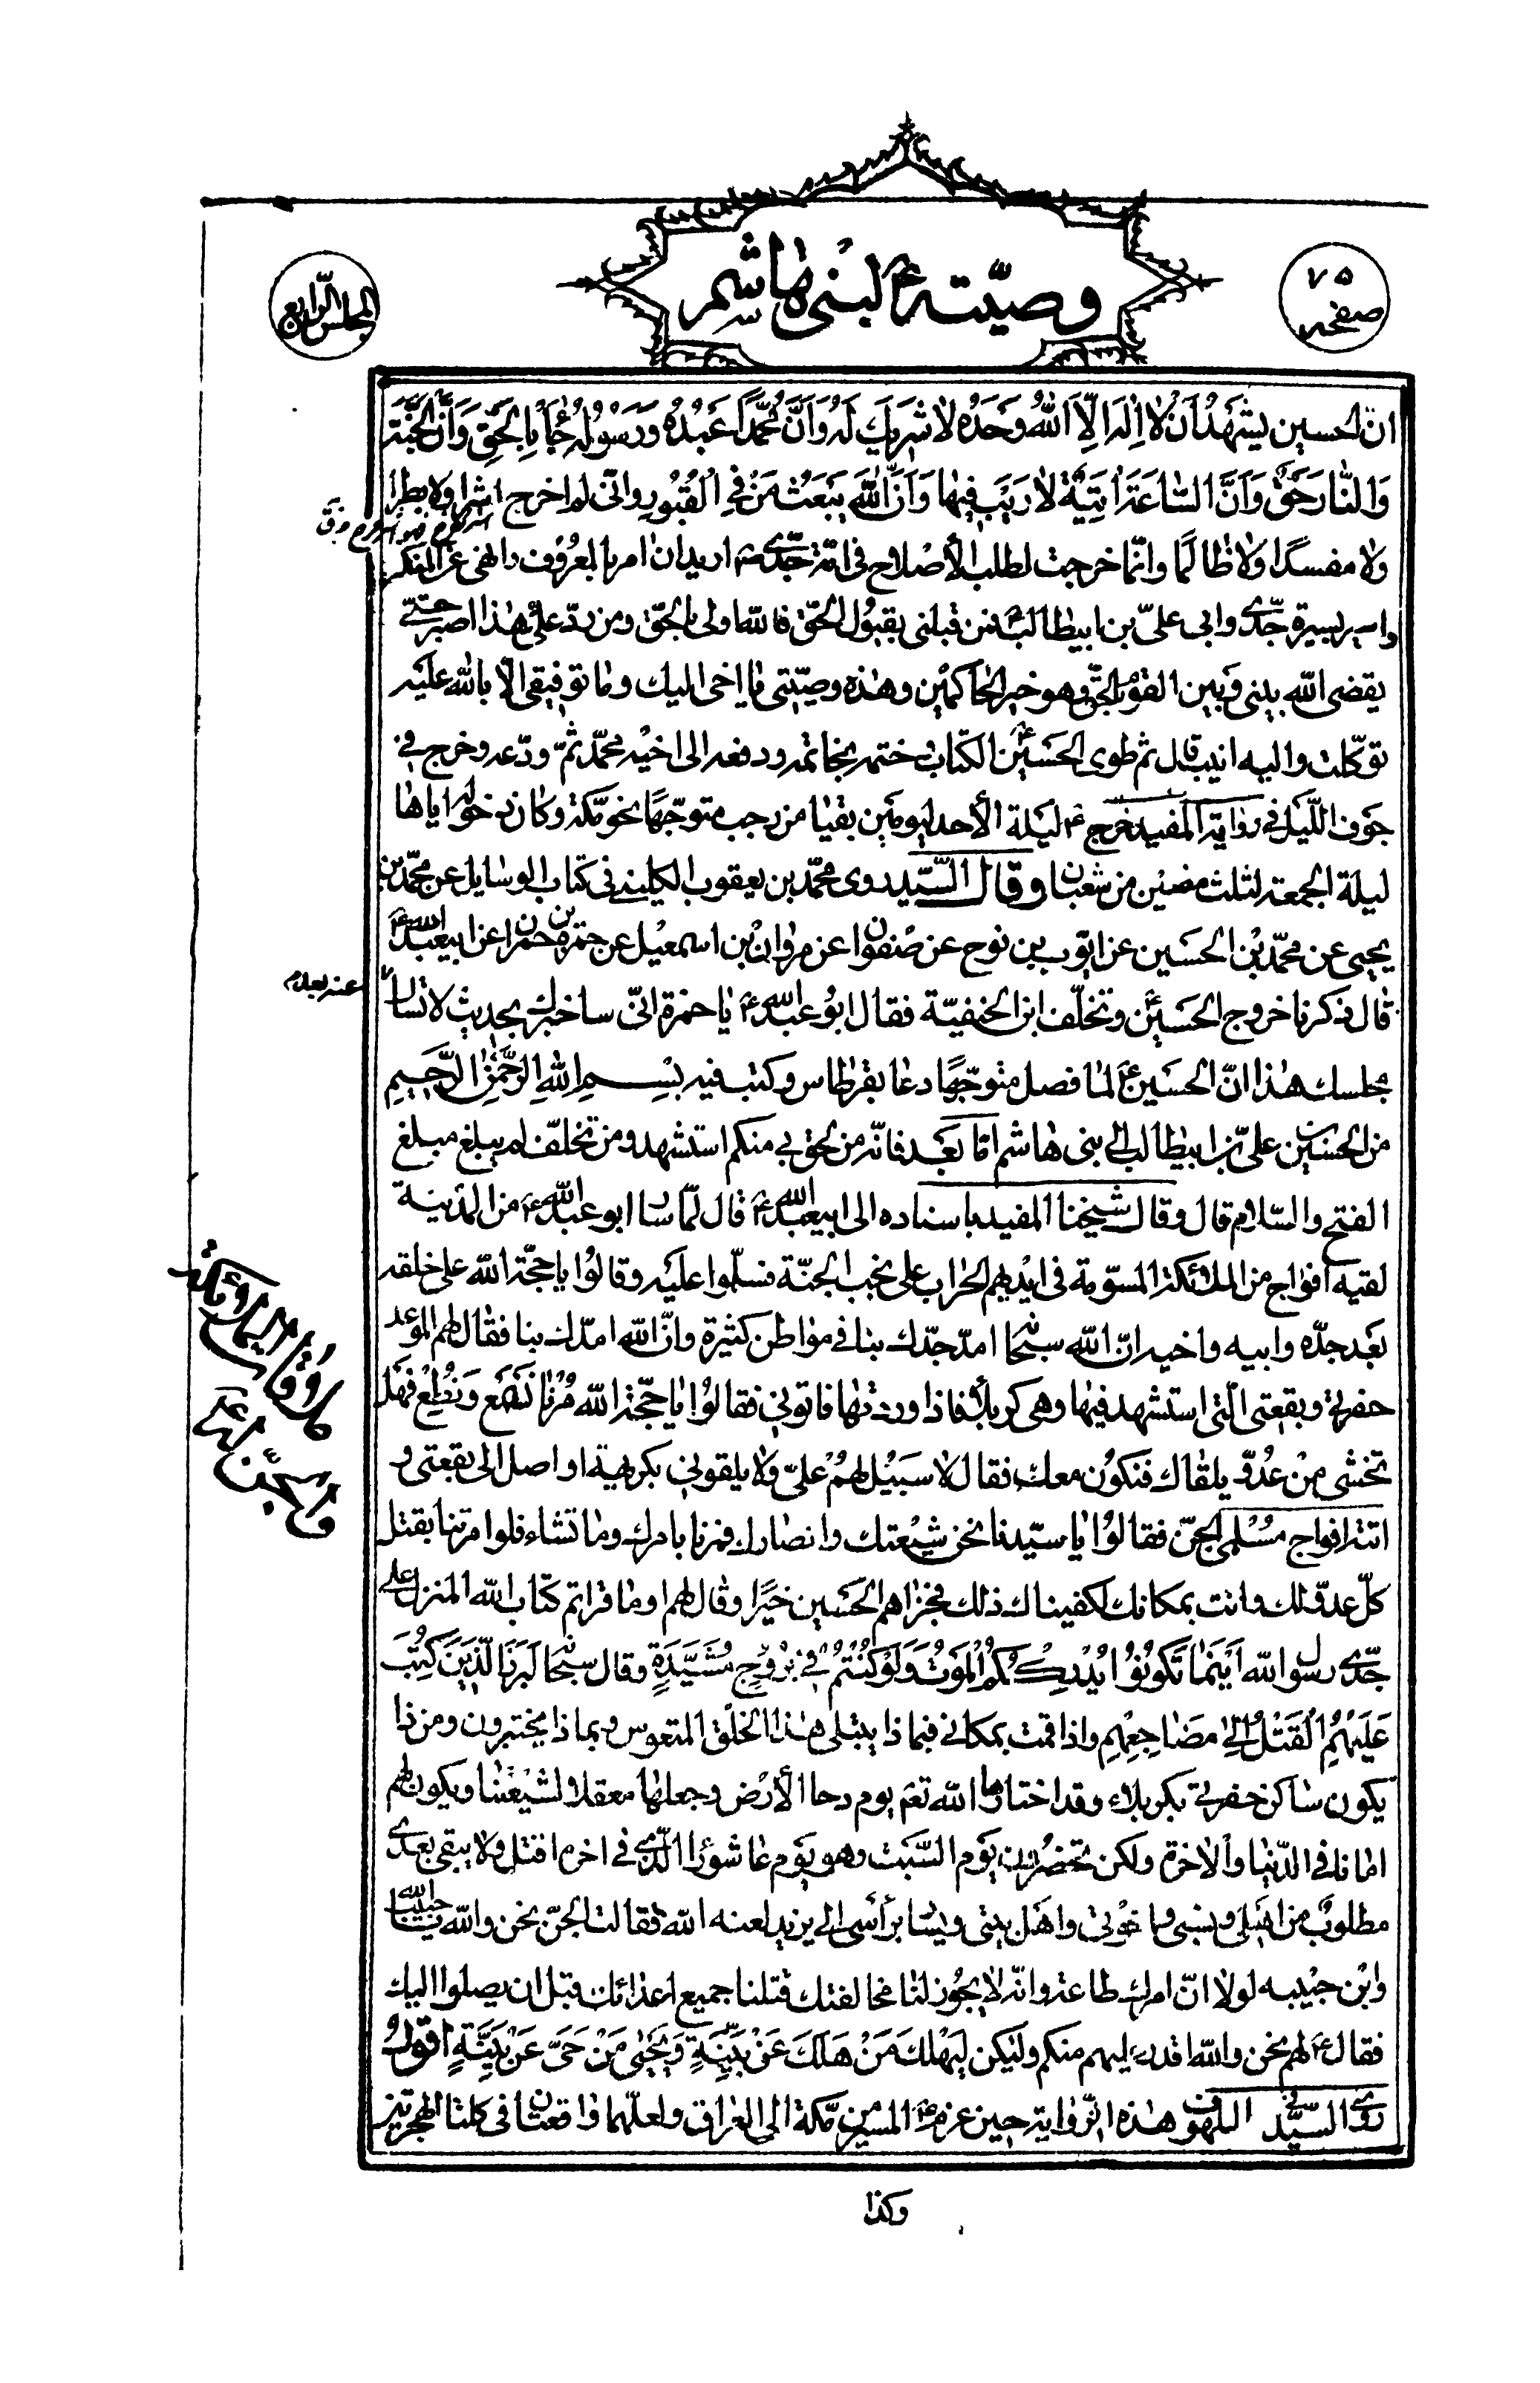 صفحه ٧٥
وصيّته ع لبنى هاشم
المجلس الرّابع
انّ الحسين يشهد أن لا اله الّا الله وحده لا شريك له وأنّ محمّدًا عبده ورسوله جاء بالحقّ وأنّ الجنّة
والنّار حقّ وأنّ السّاعة اتية لا ريب فيها وأنّ الله يبعث من في القبور وانّى لم اخرج اشرا ولا بطرا
ولا مفسدًا ولا ظالمًا وانّما خرجت لطلب الأصلاح فى امّة جدّى ص اريد ان امر بالمعروف وانهى عن المنكر
واسير بسيرة جدّى وابى علىّ بن ابيطالب ع فمن قبلنى بقبول الحقّ فالله اولى بالحقّ ومن ردّ علىّ هذا اصبر حتّى
يقضى الله بينى وبين القوم بالحقّ وهو خير الحاكمين وهذه وصيّتى يا اخى اليك وما توفيقى الّا بالله عليه
توكّلت واليه انيب قال ثم طوى الحسين ع الكتاب ختمه بخاتمه ودفعه الى اخيه محمّد ثمّ ودّعه وخرج في
جوف اللّيل في رواية المفيد خرج ع ليلة الأحد ليومين بقيا من رجب متوجّهًا نحو مكّة وكان دخوله اياها
ليلة الجمعة لثلث مضين من شعبان وقال السّيّد روى محمّد بن يعقوب الكلينى فى كتاب الوسايل عن محمّد بن
يحيى عن محمّد بن الحسين عن ايّوب بن نوح عن صفوان عن مروان بن اسمعيل عن حمزة بن حمران عن ابيعبد الله ع
قال ذكرنا خروج الحسين ع وتخلّف ابن الحنفيّة فقال ابو عبد الله ع يا حمزة انّى ساخبرك بحديث لا تسال
عنه بعد
مجلسك هذا انّ الحسين ع لما فصل متوجّهًا دعا بقرطاس وكتب فيه بسم الله الرّحمن الرّحيم
من الحسين بن علىّ بن ابيطالب الى بنى هاشم امّا بعد فانّه من لحق بي منكم استشهد ومن تخلّف لم يبلغ مبلغ
الفتح والسّلام قال وقال شيخنا المفيد باسناده الى ابيعبد الله ع قال لمّا سار ابو عبد الله ع من المدينة
لقيه افواج من الملائكة المسوّمة فى ايديهم الحراب على نجب الجنّة فسلّموا عليه وقالوا يا حجّة الله على خلقه
بعد جدّه وابيه واخيه انّ الله سبحانه امدّ جدّك بنا في مواطن كثيرة وانّ الله امدّك بنا فقال لهم الموعد
حفرتي وبقعتى الّتى استشهد فيها وهى كربلا فاذا وردتها فاتوني فقالوا يا حجّة الله مرنا نسمع ونطع فهل
تخشى من عدوّ يلقاك فنكون معك فقال لا سبيل لهم علىّ ولا يلقوني بكريهة او اصل الى بقعتى و
اتته افواج مسلمى الجنّ فقالوا يا سيّدنا نحن شيعتك وانصارك فمرنا بامرك وما تشاء فلو امرتنا بقتل
كلّ عدوّ لك وانت بمكانك لكفيناك ذلك فجزاهم الحسين خيرًا وقال لهم اوما قراتم كتاب الله المنزل على
جدّى رسول الله أينما تكونوا يدرككم الموت ولو كنتم في بروج مشيّدة وقال سبحانه لبرز الّذين كتب
عليهم القتل الى مضاجعهم واذا قمت بمكاني فبماذا يبتلى هذا الخلق المتعوس وبماذا يختبرون ومن ذا
يكون ساكن حفرتي بكربلاء وقد اختارها الله تعم يوم دحا الأرض وجعلها معقلا لشيعتنا ويكون لهم
امانا في الدّنيا والاخرة ولكن تحضرون يوم السّبت وهو يوم عاشورا الّذى في اخره اقتل ولا يبقى بعدى
مطلوب من اهلى ونسبى واخوتى واهل بيتى ويسار برأسى الى يزيد لعنه الله فقالت الجنّ نحن والله يا حبيب الله
وابن حبيبه لولا انّ امرك طاعة وانّه لا يجوز لنا مخالفتك قتلنا جميع اعدائك قبل ان يصلوا اليك
فقال ع لهم نحن والله اقدر عليهم منكم ولكن ليهلك من هلك عن بيّنة ويحيى من حىّ عن بيّنة اقول
روى السيّد في اللهوف هذه الرّواية حين عزم ع المسير من مكّة الى العراق ولعلّهما واقعتان فى كلتا الهجرتين
وكذا